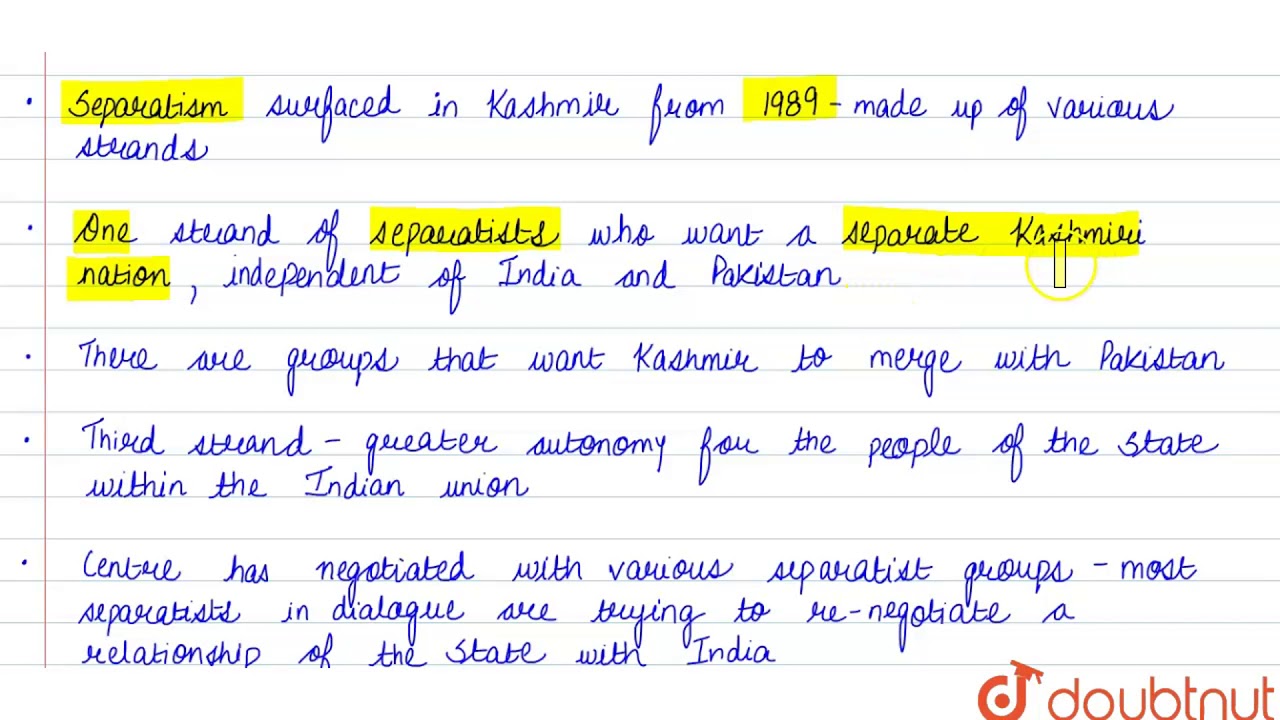 • Separatism surfaced in Kashmir from 1989 - made up of various
strands
• One strand of separatists who want a separate Kashmiri
nation, independent of India and Pakistan
• There are groups that want Kashmir to merge with Pakistan
• Third strand - greater autonomy for the people of the state
within the Indian union
• Centre has negotiated with various separatist groups - most
separatists in dialogue are trying to re-negotiate a
relationship of the state with India
doubtnut